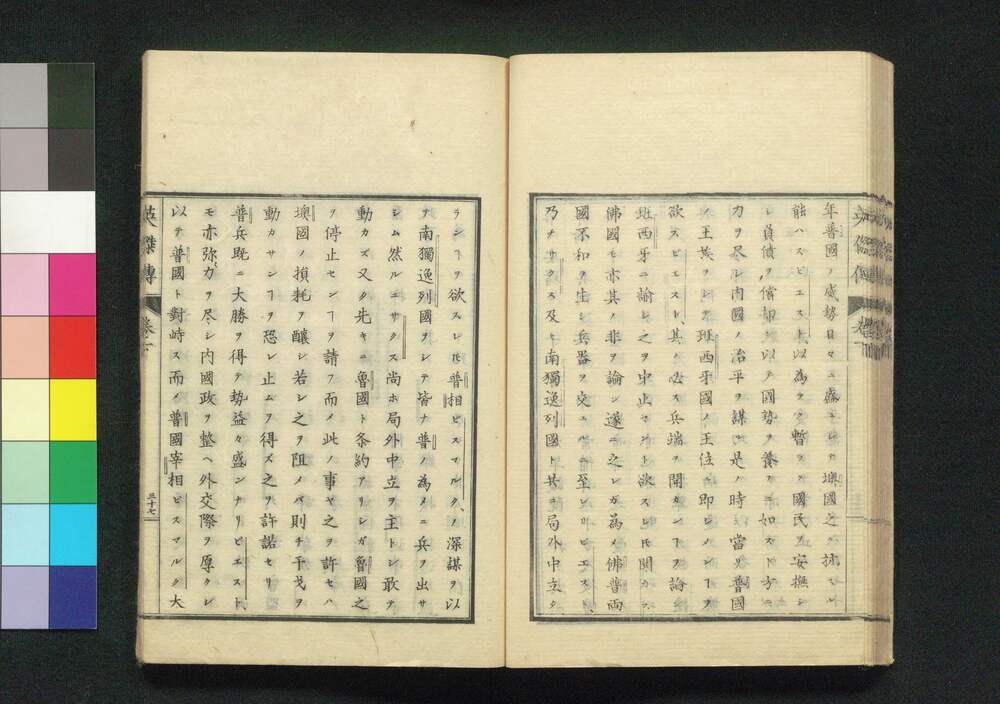 年普國ノ威勢日々ニ盛ニシテ墺國之ニ抗スル
能ハスビエスト以為ラク暫ク國民ヲ安撫シ
シ負債ヲ償却シ以テ國勢ヲ養フニ如ズト方ニ
力ヲ尽シ内國ノ治平ヲ謀ル是ノ時ニ當リ普國
ノ王族ヲシテ班西牙國ノ王位ニ即シメンヿヲ
欲スビエスト其ノ必ス兵端ヲ開カンヿヲ論シ
班西牙ニ諭シ之ヲ中止セシメント欲スレ𪜈聞カス
佛國モ亦其ノ非ヲ論シ遂ニ之レガ為メ佛普両
國不和ヲ生シ兵器ヲ交ユルニ至レリビエスト
乃チサクス及ヒ南獨逸列國ト共ニ局外中立タ
ランヿヲ欲スレ𪜈普相ビスマルクノ深謀ヲ以
テ南獨逸列國ヲシテ皆ナ普ノ為メニ兵ヲ出サ
シム然ルニサクス尚ホ局外中立ヲ主トシ敢テ
動カズ又タ先キニ魯國ト条約アリシガ魯國之
ヲ停止センヿヲ請フ而ノ此ノ事ヤ之ヲ許セハ
墺國ノ損耗ヲ釀シ若シ之ヲ阻メバ則チ干戈ヲ
動カサンヿヲ恐レ止ムヲ得ズ之ヲ許諾セリ
普兵既ニ大勝ヲ得テ勢益々盛ンナリビエスト
モ亦弥力ヲ尽シ内國政ヲ整ヘ外交際ヲ厚クシ
以テ普國ト對峙ス而ノ普國宰相ビスマルク大
英傑傳
巻十
三十七